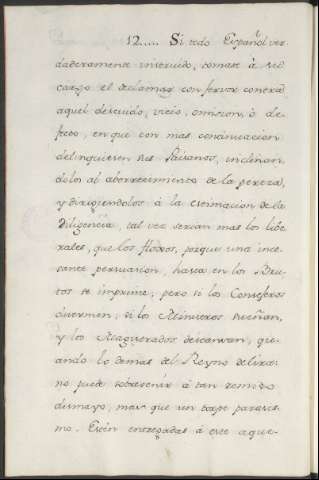 12..... Si todo Español ver
daderamente instruido, tomase à su
cargo el declamar con fervor contra
aquel descuido, vicio, omision, ò de-
fecto, en que con mas continuacion
delinquiesen sus Paisanos, inclinan-
dolos al aborrecimiento de la pereza,
y dirigiendolos à la estimacion de la
Diligencia, tal vez serian mas los libe
rales, que los floxos, porque una ince-
sante persuacion, hasta en los Bru-
tos se imprime; pero si los Consejeros
duermen; si los Ministros sueñan,
y los Magistrados descansan, qu-
ando lo demas del Reyno delira:
no puede sobrevenir à tan
desmayo, mas que un torpe parasis-
mo. Estén entregadas à este aque-